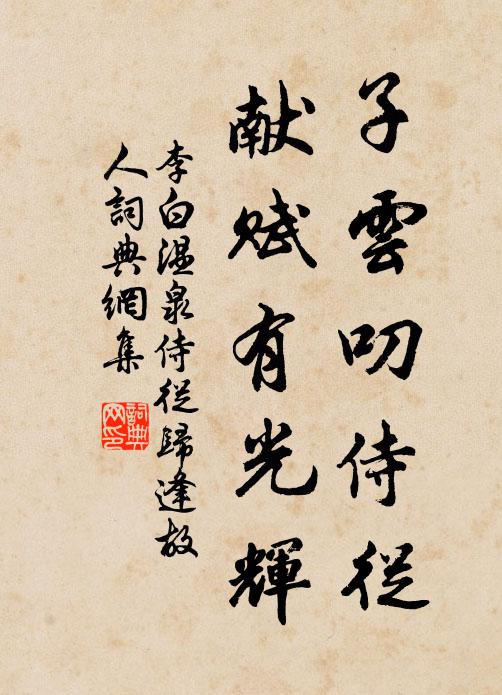 子雲叨侍從
献赋有光輝
李白温泉侍從歸逢故
人詞典網集
詞典网印